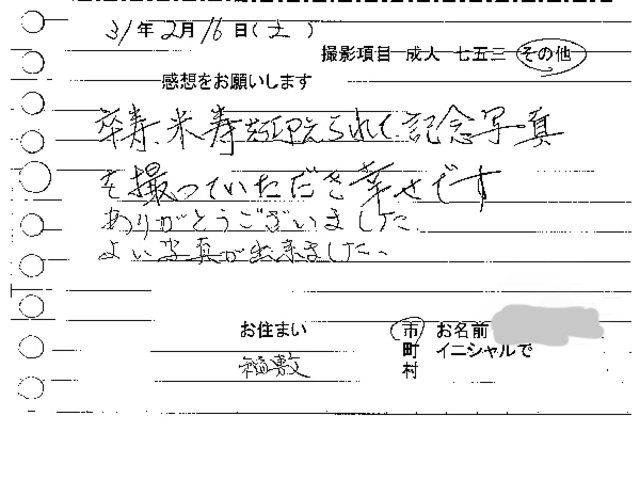 31年2月16日(土)
撮影項目 成人 七五三 その他
感想をお願いします
卒寿、米寿を迎えられて記念写真
を撮っていただき幸せです
ありがとうございました。
よい写真が出来ました。
お住まい 市 お名前
町 イニシャルで
村
稲敷